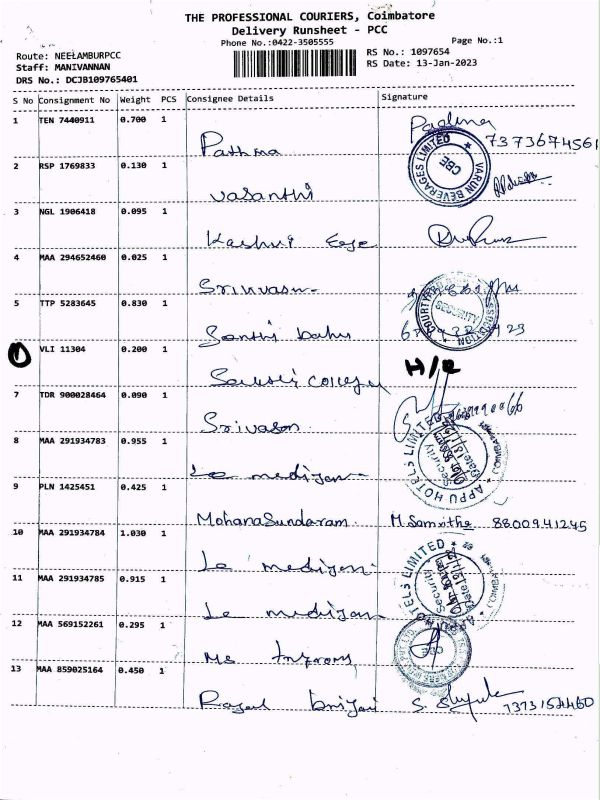 THE PROFESSIONAL COURIERS, Coimbatore
Delivery Runsheet - PCC
Phone No.:0422-3505555
Page No.:1
Route: NEELAMBURPCC
Staff: MANIVANNAN
DRS No.: DCJB109765401
RS No.: 1097654
RS Date: 13-Jan-2023
S No Consignment No Weight PCS Consignee Details Signature
1 TEN 7440911 0.700 1 Pathma Padma 7373674561
2 RSP 1769833 0.130 1 Vasanthi VARUN BEVERAGES LIMITED CBE
3 NGL 1906418 0.095 1 Kashvi Eye
4 MAA 294652460 0.025 1 Srinivasan
5 TTP 5283645 0.830 1 Santhi babu SECURITY
VLI 11304 0.200 1 college H/R
7 TDR 900028464 0.090 1 Srivasan
8 MAA 291934783 0.955 1 Le medijan APPU HOTELS LIMITED Security
9 PLN 1425451 0.425 1 MohanaSundaram M. Samritha 8800941245
10 MAA 291934784 1.030 1 Le medijan APPU HOTELS LIMITED Security
11 MAA 291934785 0.915 1 Le medijan
12 MAA 569152261 0.295 1 Ms CBE
13 MAA 859025164 0.450 1